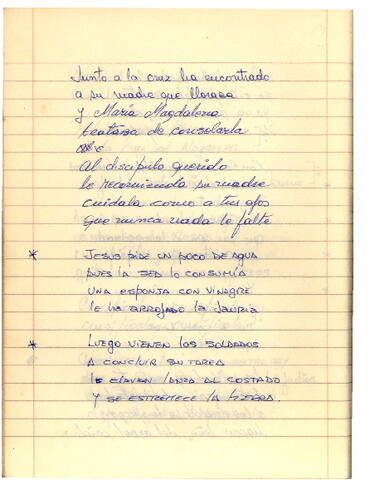 Junto a la cruz ha encontrado
a su madre que lloraba
y María Magdalena
trataba de consolarla
Al discípulo querido
le recomienda su madre
cuídala como a tus ojos
que nunca nada le falte
* JESUS PIDE UN POCO DE AGUA
PUES LA SED LO CONSUMÍA
UNA ESPONJA CON VINAGRE
LE HA ARROJADO LA JAURIA
* LUEGO VIENEN LOS SOLDADOS
A CONCLUIR SU TAREA
LE CLAVAN LANZA AL COSTADO
Y SE ESTREMECE LA TIERRA